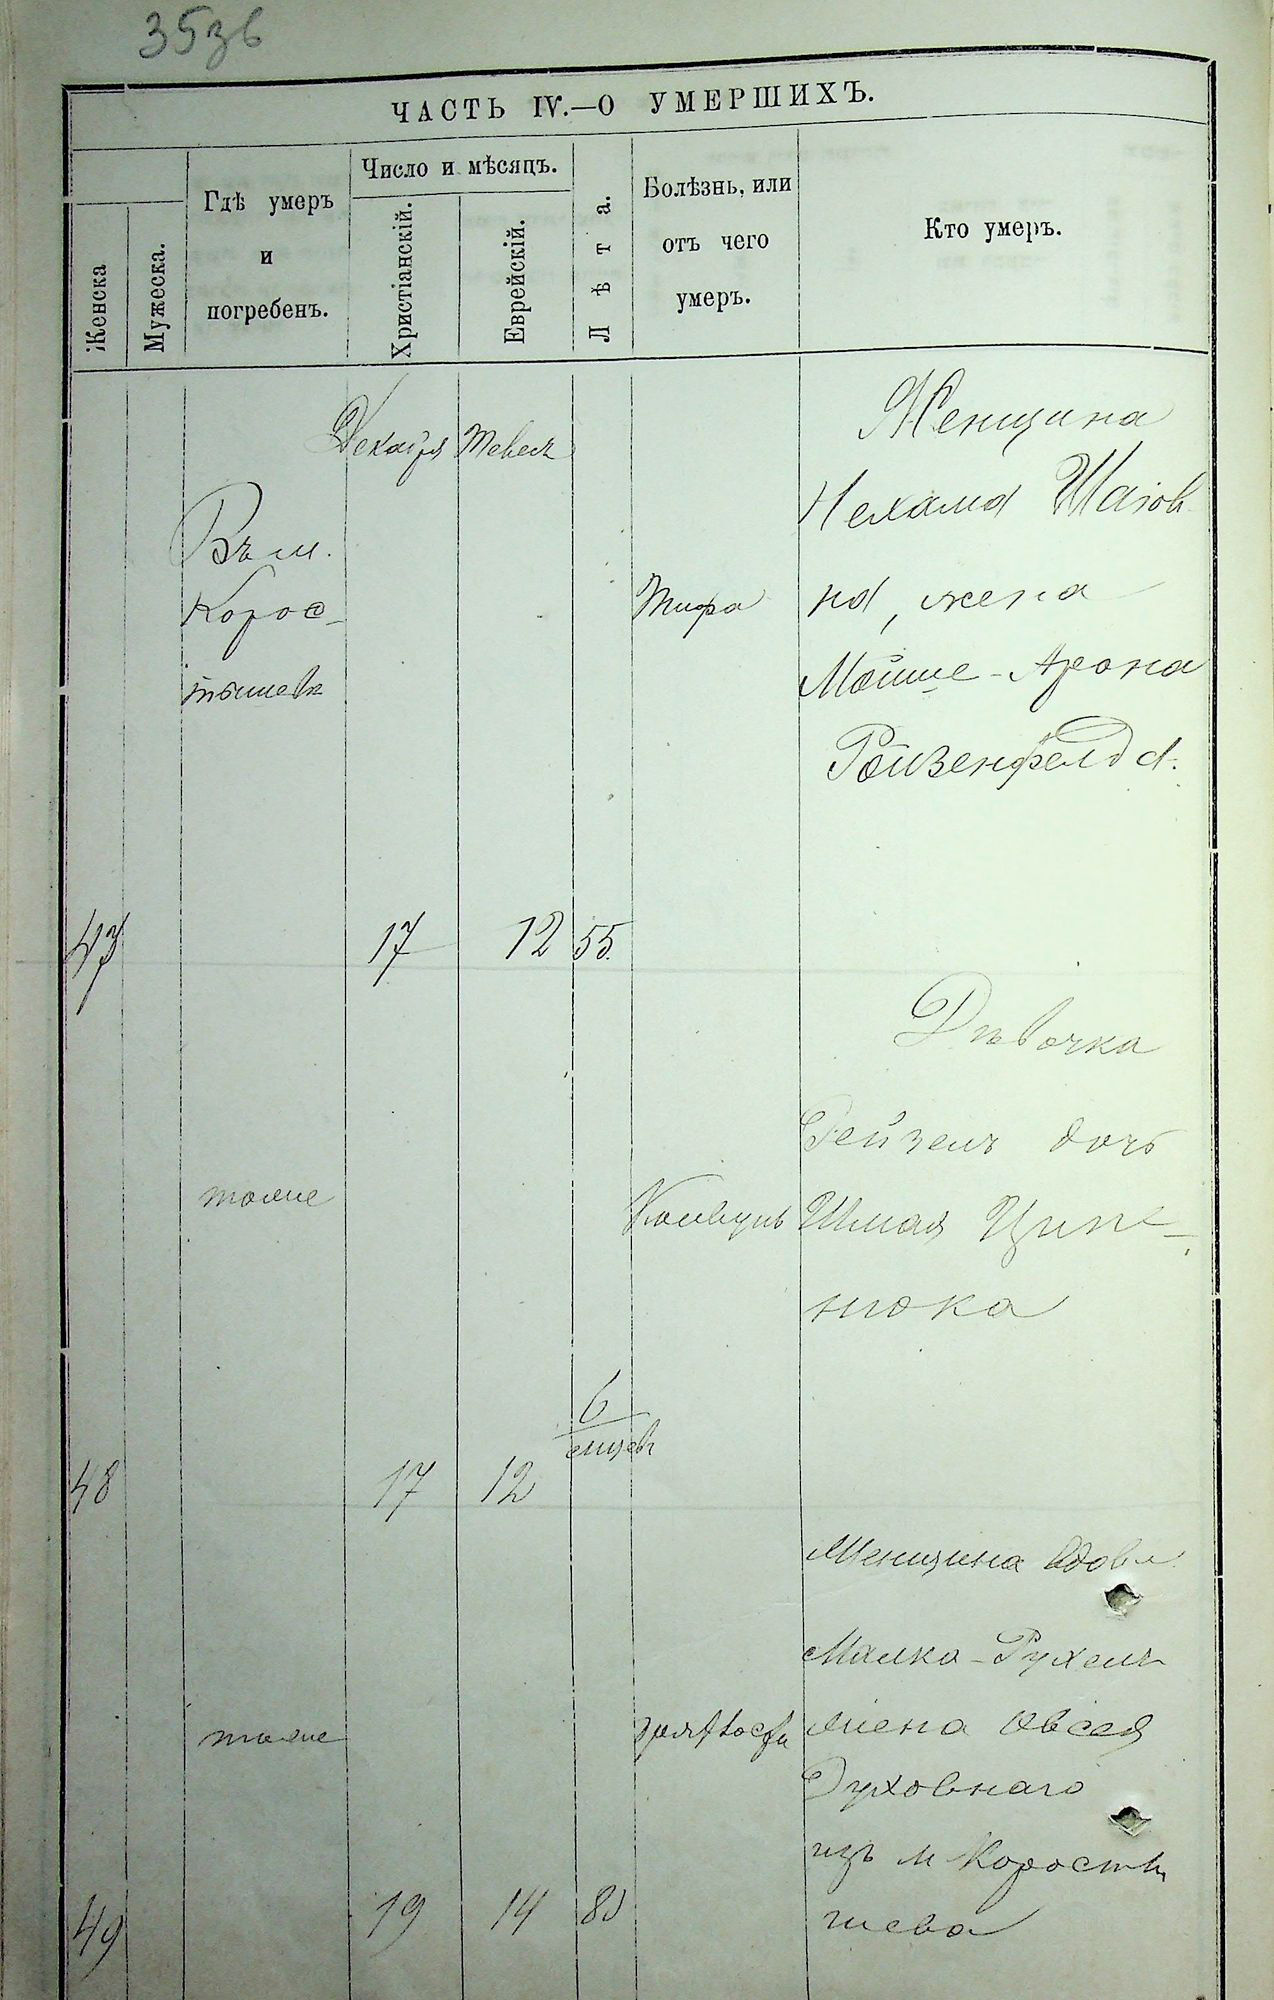 353б
ЧАСТЬ IV.—О УМЕРШИХЪ.
Женска
Мужеска.
Гдѣ умеръ
и
погребенъ.
Число и мѣсяцъ.
Христіанскій.
Еврейскій.
Лѣта.
Болѣзнь, или
отъ чего
умеръ.
Кто умеръ.
Декабря Тевесъ
Женщина
Нехама
Въ м.
Корос-
Тифа
на, жена
Мойше-Арона
Ройзенфельда.
17 12 55.
Дѣвочка
Рейзель дочь
тоже
Шмая Цип-
нюка
6
мѣсяц
48 17 12
Женщина вдова
Малка-Рухель
тоже
жена Овсея
Духовнаго
изъ м Коросты
шева
49 19 14 80